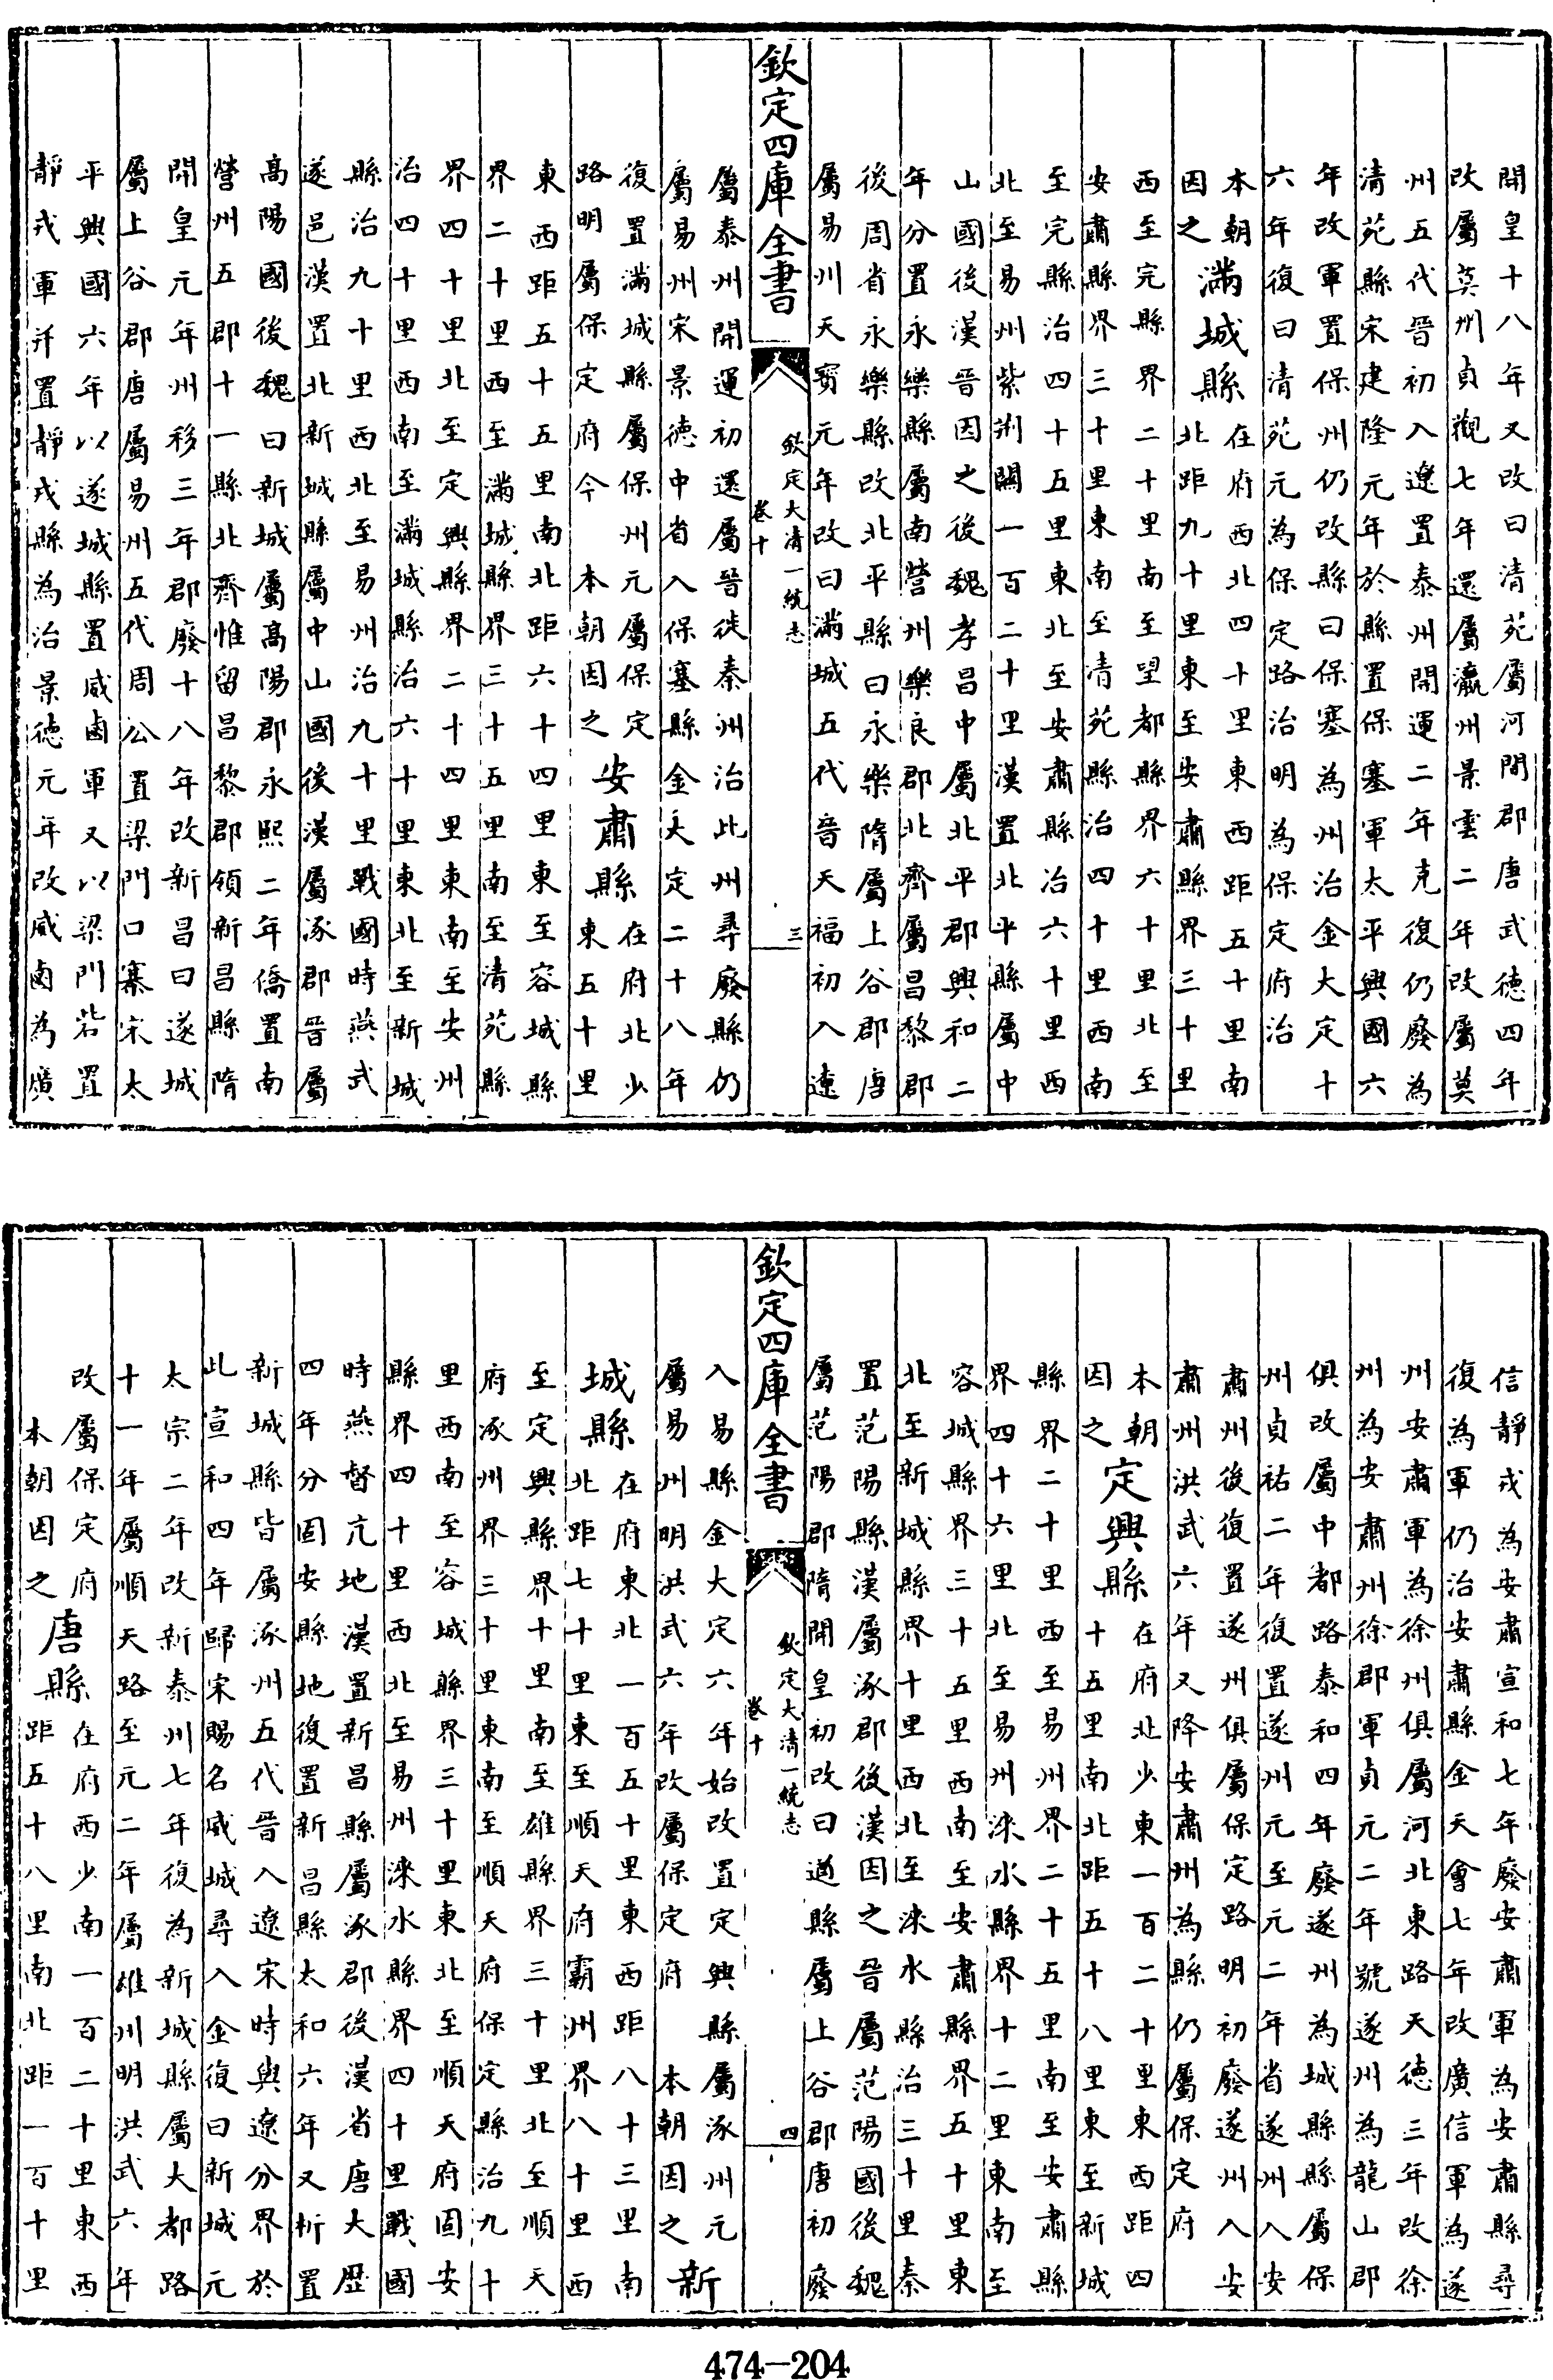 開皇十八年又改曰清苑屬河間郡唐武德四年
改屬莫州貞觀七年還屬瀛州景雲二年改屬莫
州五代晉初入遼置泰州開運二年克復仍廢為
清苑縣宋建隆元年於縣置保塞軍太平興國六
年改軍置保州仍改縣曰保塞為州治金大定十
六年復曰清苑元為保定路治明為保定府治
本朝
因之
滿城縣
在府西北四十里東西距五十里南
北距九十里東至安肅縣界三十里
西至完縣界二十里南至望都縣界六十里北至
安肅縣界三十里東南至清苑縣治四十里西南
至完縣治四十五里東北至安肅縣治六十里西
北至易州紫荆關一百二十里漢置北平縣屬中
山國後漢晉因之後魏孝昌中屬北平郡興和二
年分置永樂縣屬南營州樂良郡北齊屬昌黎郡
後周省永樂縣改北平縣曰永樂隋屬上谷郡唐
屬易州天寳元年改曰滿城五代晉天福初入遼
欽定四庫全書
欽定大清一統志
卷十
三
屬泰州開運初還屬晉徙泰州治此州尋廢縣仍
屬易州宋景德中省入保塞縣金大定二十八年
復置滿城縣屬保州元屬保定
路明屬保定府今 本朝因之
安肅縣
在府北少
東五十里
東西距五十五里南北距六十四里東至容城縣
界二十里西至滿城縣界三十五里南至清苑縣
界四十里北至定興縣界二十四里東南至安州
治四十里西南至滿城縣治六十里東北至新城
縣治九十里西北至易州治九十里戰國時燕武
遂邑漢置北新城縣屬中山國後漢屬涿郡晉屬
高陽國後魏曰新城屬高陽郡永熙二年僑置南
營州五郡十一縣北齊惟留昌黎郡領新昌縣隋
開皇元年州移三年郡廢十八年改新昌曰遂城
屬上谷郡唐屬易州五代周公置梁門口寨宋太
平興國六年以遂城縣置威鹵軍又以梁門砦置
靜戎軍并置靜戎縣為治景德元年改威鹵為廣
信靜戎為安肅宣和七年廢安肅軍為安肅縣尋
復為軍仍治安肅縣金天會七年改廣信軍為遂
州安肅軍為徐州俱屬河北東路天德三年改徐
州為安肅州徐郡軍貞元二年號遂州為龍山郡
俱改屬中都路泰和四年廢遂州為城縣縣屬保
州貞祐二年復置遂州元至元二年省遂州入安
肅州後復置遂州俱屬保定路明初廢遂州入安
肅州洪武六年又降安肅州為縣仍屬保定府
本朝
因之
定興縣
在府北少東一百二十里東西距四
十五里南北距五十八里東至新城
縣界二十里西至易州界二十五里南至安肅縣
界四十六里北至易州淶水縣界十二里東南至
容城縣界三十五里西南至安肅縣界五十里東
北至新城縣界十里西北至淶水縣治三十里秦
置范陽縣漢屬涿郡後漢因之晉屬范陽國後魏
屬范陽郡隋開皇初改曰遒縣屬上谷郡唐初廢
欽定四庫全書
欽定大清一統志
卷十
四
入易縣金大定六年始改置定興縣屬涿州元
屬易州明洪武六年改屬保定府 本朝因之
新
城縣
在府東北一百五十里東西距八十三里南
北距七十里東至順天府霸州界八十里西
至定興縣界十里南至雄縣界三十里北至順天
府涿州界三十里東南至順天府保定縣治九十
里西南至容城縣界三十里東北至順天府固安
縣界四十里西北至易州淶水縣界四十里戰國
時燕督亢地漢置新昌縣屬涿郡後漢省唐大歷
四年分固安縣地復置新昌縣太和六年又析置
新城縣皆屬涿州五代晉入遼宋時與遼分界於
此宣和四年歸宋賜名威城尋入金復曰新城元
太宗二年改新泰州七年復為新城縣屬大都路
十一年屬順天路至元二年屬雄州明洪武六年
改屬保定府
本朝因之
唐縣
在府西少南一百二十里東西
距五十八里南北距一百十里
474-204